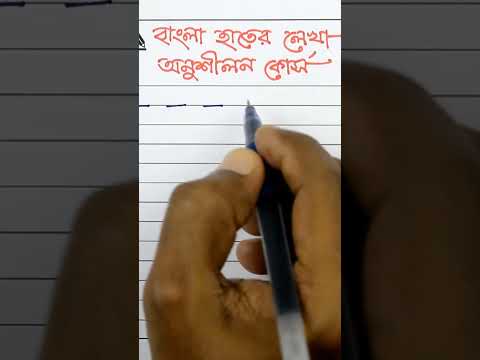 বাংলা হাতের লেখা
অনুশীলন কোর্স